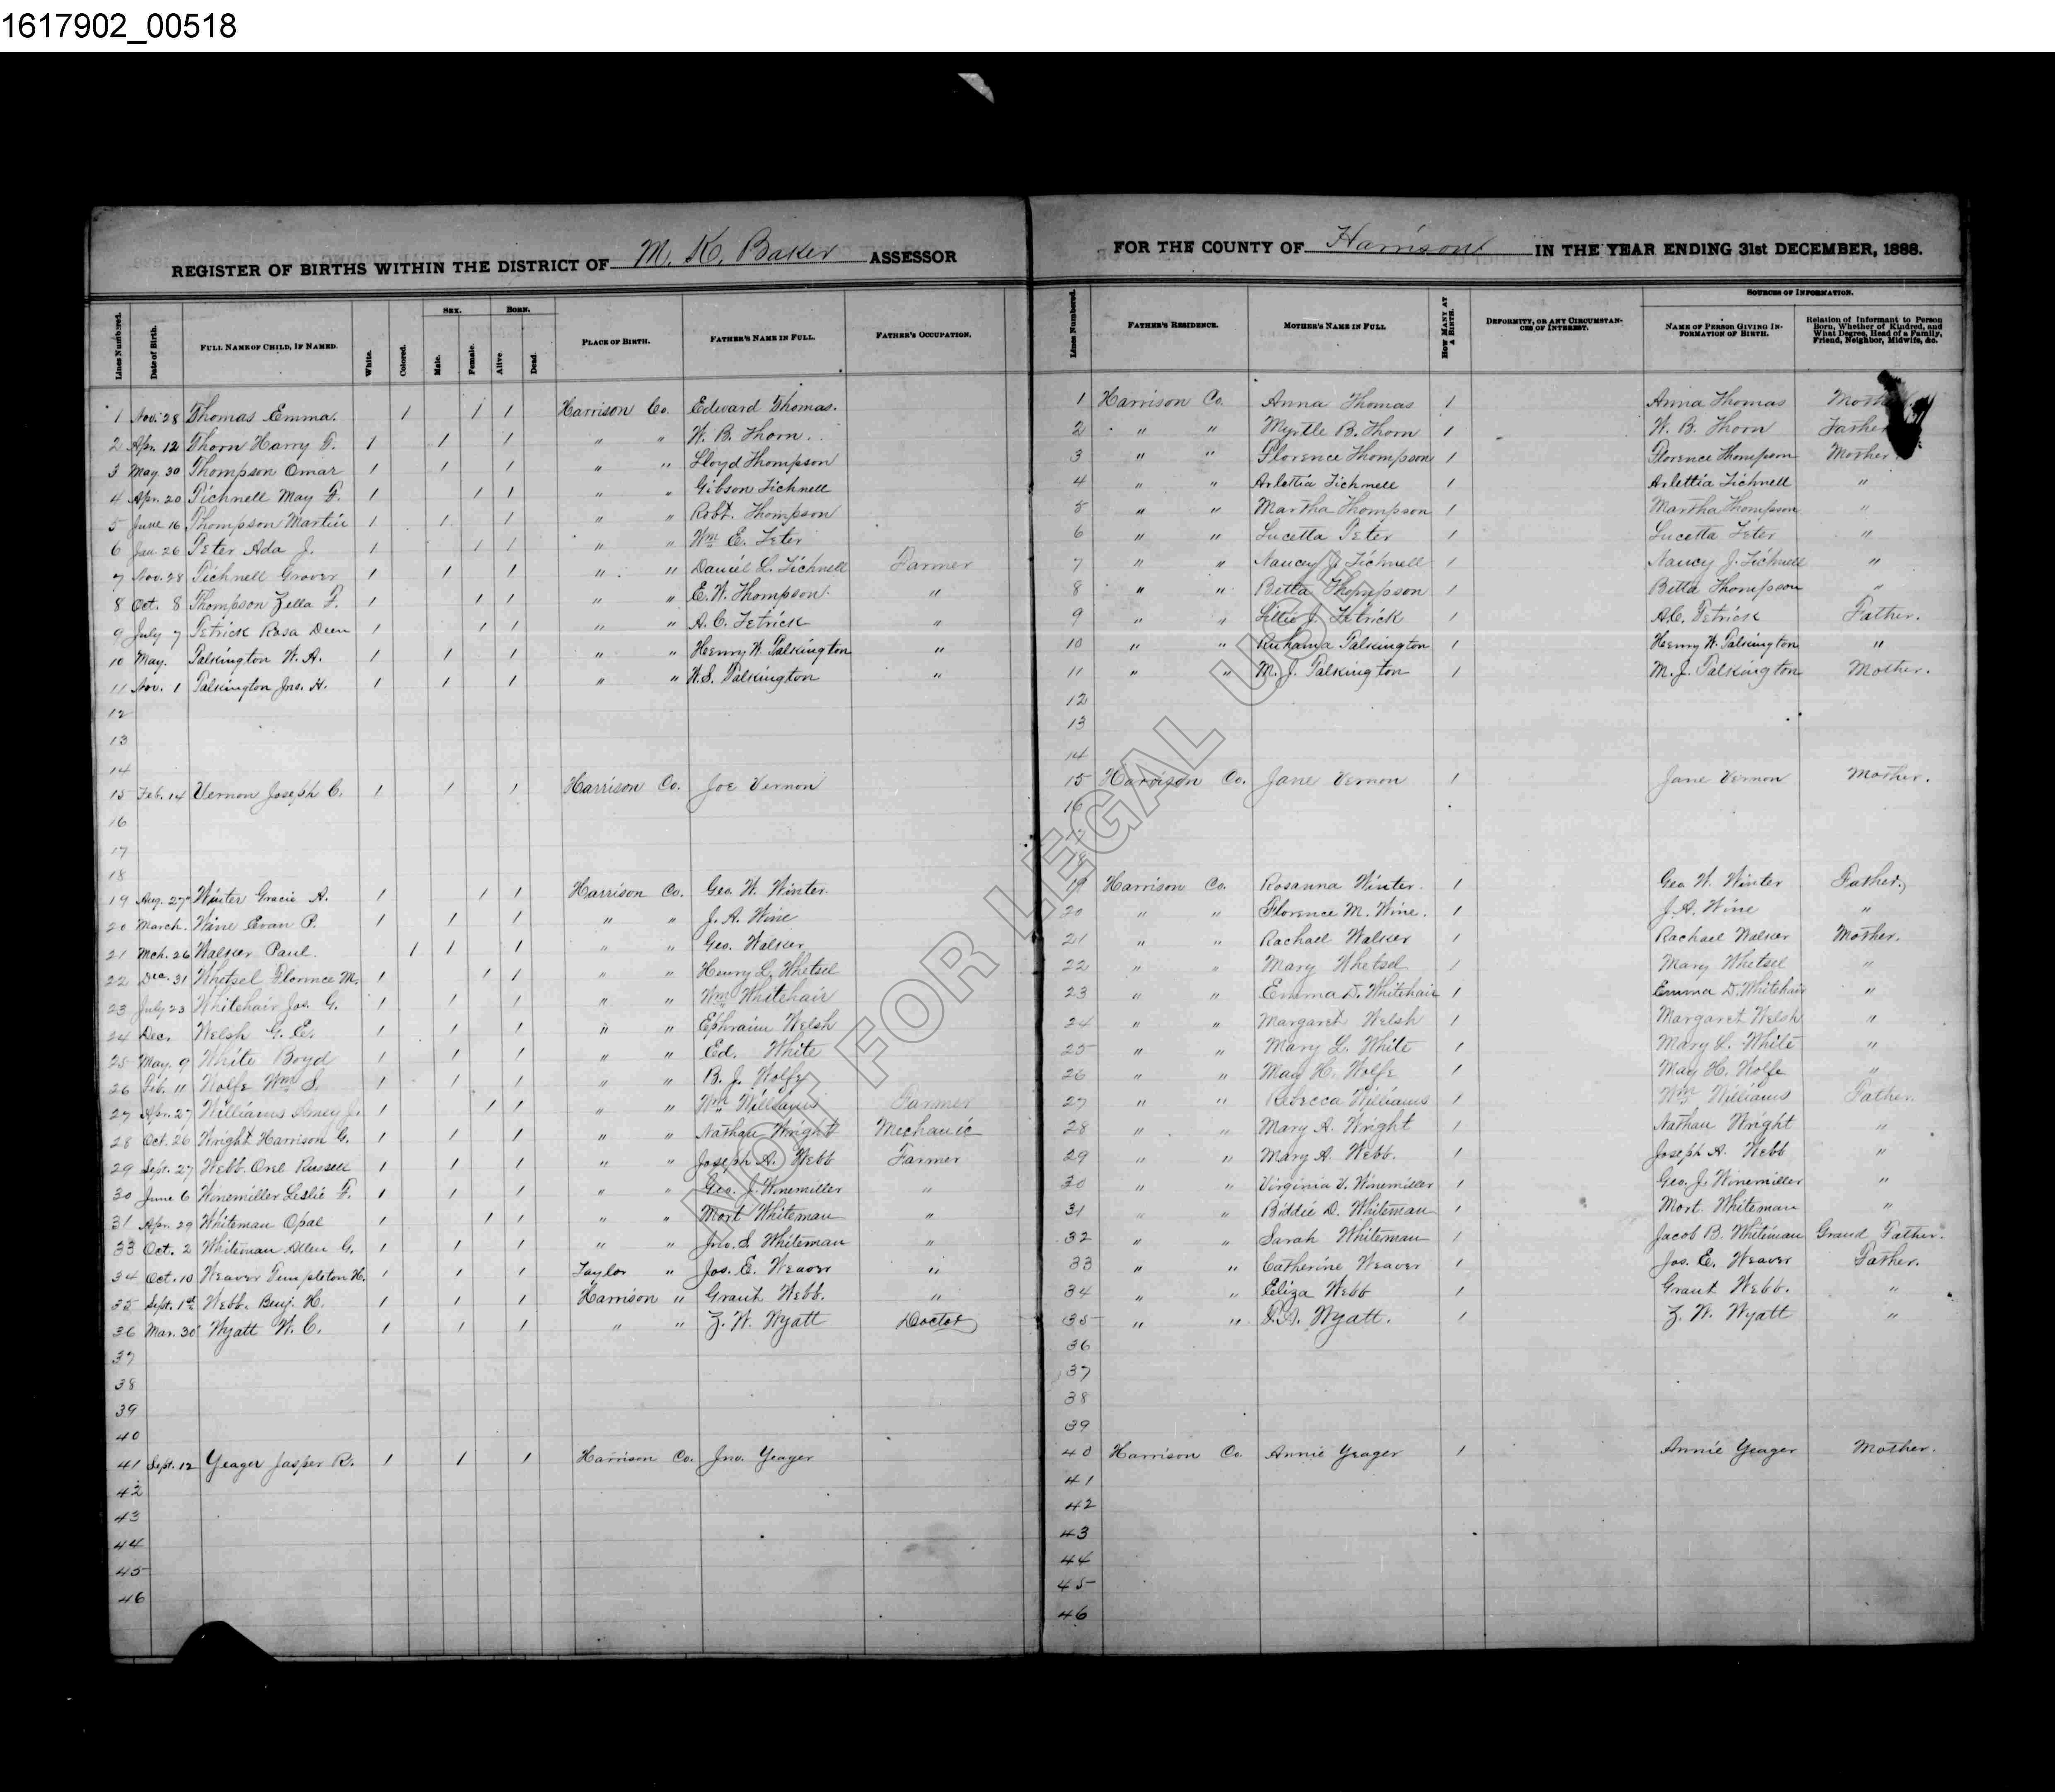 1617902_00518
REGISTER OF BIRTHS WITHIN THE DISTRICT OF M. K. Baker ASSESSOR
FOR THE COUNTY OF Harrison IN THE YEAR ENDING 31st DECEMBER, 1888.
Lines Numbered. Date of Birth. FULL NAME OF CHILD, IF NAMED. White. Colored. SEX. Male. Female. BORN. Alive. Dead. PLACE OF BIRTH. FATHER'S NAME IN FULL. FATHER'S OCCUPATION.
Lines Numbered. FATHER'S RESIDENCE. MOTHER'S NAME IN FULL HOW MANY AT A BIRTH. DEFORMITY, OR ANY CIRCUMSTANCES OF INTEREST. SOURCES OF INFORMATION. NAME OF PERSON GIVING INFORMATION OF BIRTH. Relation of Informant to Person Born, Whether of Kindred, and What Degree, Head of a Family, Friend, Neighbor, Midwife, &c.
1 Nov. 28 Thomas Emma. 1 1 1 Harrison Co. Edward Thomas. 1 Harrison Co. Anna Thomas 1 Anna Thomas
2 Apr. 12 Thorn Harry F. 1 1 1 " " W. B. Thorn. 2 " " Myrtle B. Thorn 1 W. B. Thorn Father
3 May. 30 Thompson Omar 1 1 1 " " Lloyd Thompson 3 " " Florence Thompson 1 Florence Thompson Mother
4 Apr. 20 Tichnell May F. 1 1 1 " " Gibson Tichnell 4 " " Arlettia Tichnell 1 Arlettia Tichnell "
5 June 16 Thompson Martin 1 1 1 " " Robt. Thompson 5 " " Martha Thompson 1 Martha Thompson "
6 Jan. 26 Teter Ada J. 1 1 1 " " Wm E. Teter 6 " " Lucetta Teter 1 Lucetta Teter "
7 Nov. 28 Tichnell Grover 1 1 1 " " Daniel L. Tichnell Farmer 7 " " Nancy J. Tichnell 1 Nancy J. Tichnell "
8 Oct. 8 Thompson Zella F. 1 1 1 " " E. W. Thompson. " 8 " " Bitta Thompson 1 Bitta Thompson "
9 July 7 Tetrick Rosa Deen 1 1 1 " " A. C. Tetrick " 9 " " Lillie J. Tetrick 1 A. C. Tetrick Father.
10 May. Talkington W. A. 1 1 1 " " Henry W. Talkington " 10 " " Ruhama Talkington 1 Henry W. Talkington "
11 Nov. 1 Talkington Jno. H. 1 1 1 " " W. S. Talkington " 11 " " M. J. Talkington 1 M. J. Talkington Mother.
12 12
13 13
14 14
15 Feb. 14 Vernon Joseph C. 1 1 1 Harrison Co. Joe Vernon 15 Harrison Co. Jane Vernon 1 Jane Vernon Mother.
16 16
17
18
19 Aug. 27 Winter Gracie A. 1 1 1 Harrison Co. Geo. W. Winter. 19 Harrison Co. Rosanna Winter. 1 Geo W. Winter Father.
20 March. Wine Evan P. 1 1 1 " " J. A. Wine 20 " " Florence M. Wine. 1 J. A. Wine "
21 Mch. 26 Walker Paul. 1 1 1 " " Geo. Walker 21 " " Rachael Walker 1 Rachael Walker Mother.
22 Dec. 31 Whetsel Florence M. 1 1 1 " " Henry L. Whetsel 22 " " Mary Whetsel 1 Mary Whetsel "
23 July 23 Whitehair Jos. G. 1 1 1 " " Wm Whitehair 23 " " Emma D. Whitehair 1 Emma D. Whitehair "
24 Dec. Welsh G. E. 1 1 1 " " Ephraim Welsh 24 " " Margaret Welsh 1 Margaret Welsh "
25 May. 9 White Boyd 1 1 1 " " Ed. White 25 " " Mary L. White 1 Mary L. White "
26 Feb. 11 Wolfe Wm S. 1 1 1 " " B. J. Wolfe 26 " " May H. Wolfe 1 May H. Wolfe "
27 Apr. 27 Williams J. 1 1 1 " " Wm Williams Farmer 27 " " Rebecca Williams 1 Wm Williams Father.
28 Oct. 26 Wright Harrison G. 1 1 1 " " Nathan Wright Mechanic 28 " " Mary A. Wright 1 Nathan Wright "
29 Sept. 27 Webb. Orel Russell 1 1 1 " " Joseph A. Webb Farmer 29 " " Mary A. Webb. 1 Joseph A. Webb "
30 June 6 Winemiller Leslie F. 1 1 1 " " Geo. J. Winemiller " 30 " " Virginia V. Winemiller 1 Geo. J. Winemiller "
31 Apr. 29 Whiteman Opal 1 1 1 " " Mort Whiteman " 31 " " Biddie D. Whiteman 1 Mort. Whiteman "
33 Oct. 2 Whiteman Allen G. 1 1 1 " " Jno. S. Whiteman " 32 " " Sarah Whiteman 1 Jacob B. Whiteman Grand Father.
34 Oct. 10 Weaver Templeton H. 1 1 1 Taylor " Jos. E. Weaver " 33 " " Catherine Weaver 1 Jos. E. Weaver Father.
35 Sept. 1st Webb. Benj. H. 1 1 1 Harrison " Grant Webb. " 34 " " Eliza Webb 1 Grant Webb. "
36 Mar. 30 Wyatt W. C. 1 1 1 " " Z. W. Wyatt Doctor 35 " " Wyatt. 1 Z. W. Wyatt "
37 36
38 37
39 38
40 39
41 Sept. 12 Yeager Jasper R. 1 1 1 Harrison Co. Jno. Yeager 40 Harrison Co. Annie Yeager 1 Annie Yeager Mother.
42 41
43 42
44 43
45 44
46 45
46
NOT FOR LEGAL USE